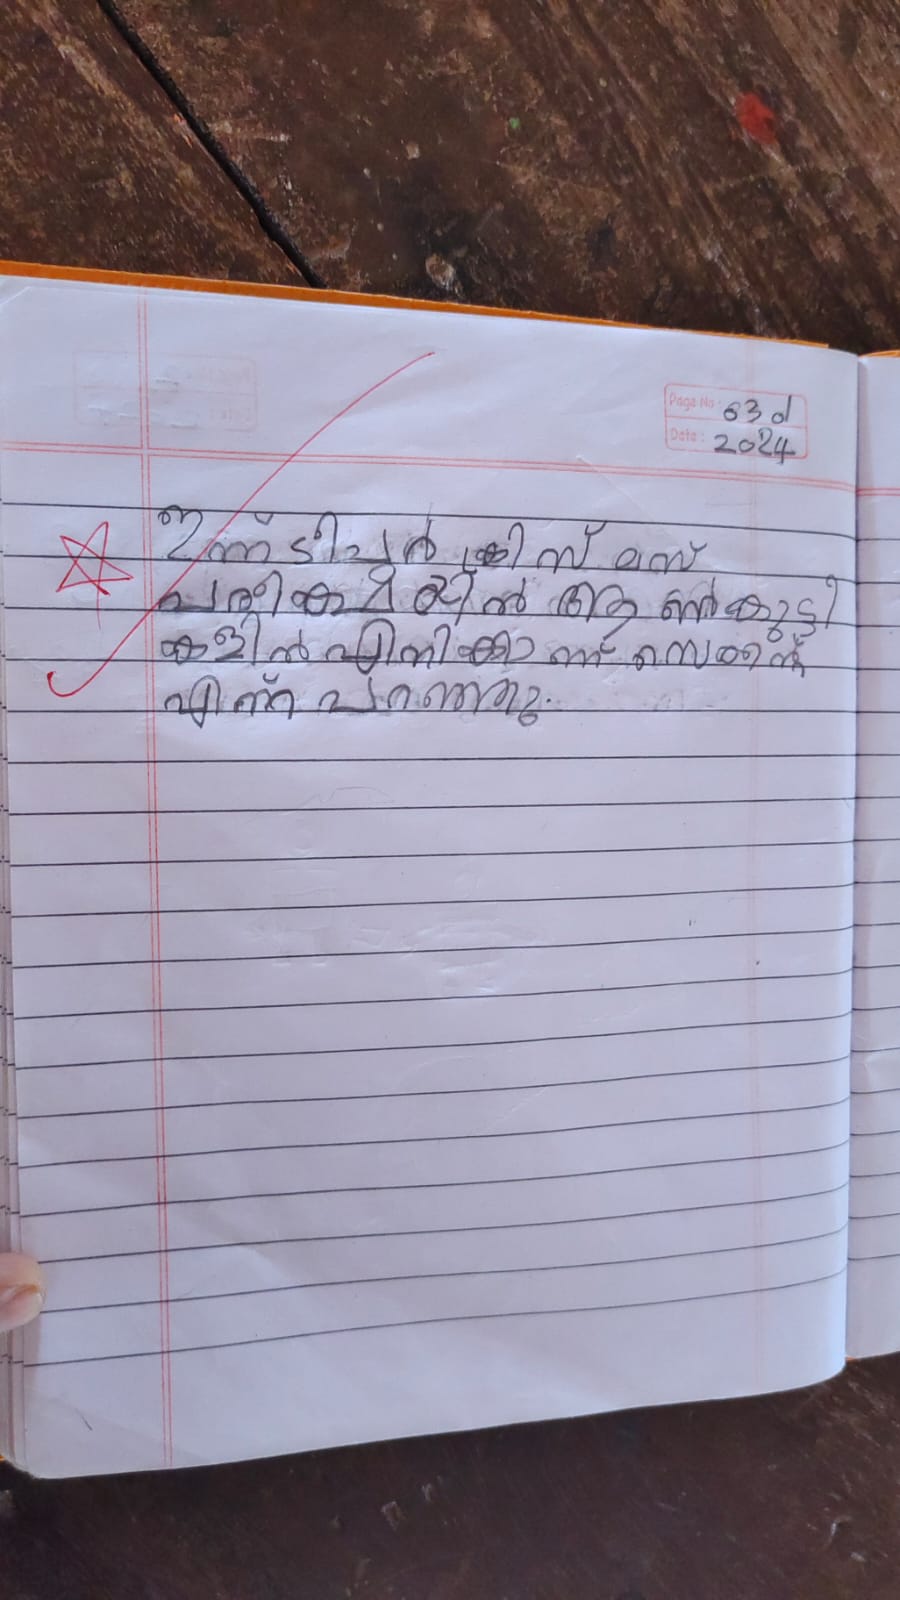 Page No: 63 d
Date: 2024
ഇന്ന് ടീച്ചർ ക്രിസ് മസ്
പരീക്ഷയിൽ ആൺകുട്ടി
കളിൽ എനിക്കാണ് സെക്കന്റ്
എന്ന് പറഞ്ഞു.